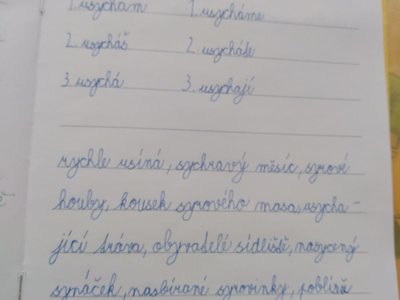 1. usychám 1. usycháme
2. usycháš 2. usycháte
3. usychá 3. usychají
rychle usíná, sychravý měsíc, syrové
houby, kousek syrového masa, usycha-
jící tráva, obyvatelé sídliště, nasycený
synáček, nasbírané syrovinky, poblíž